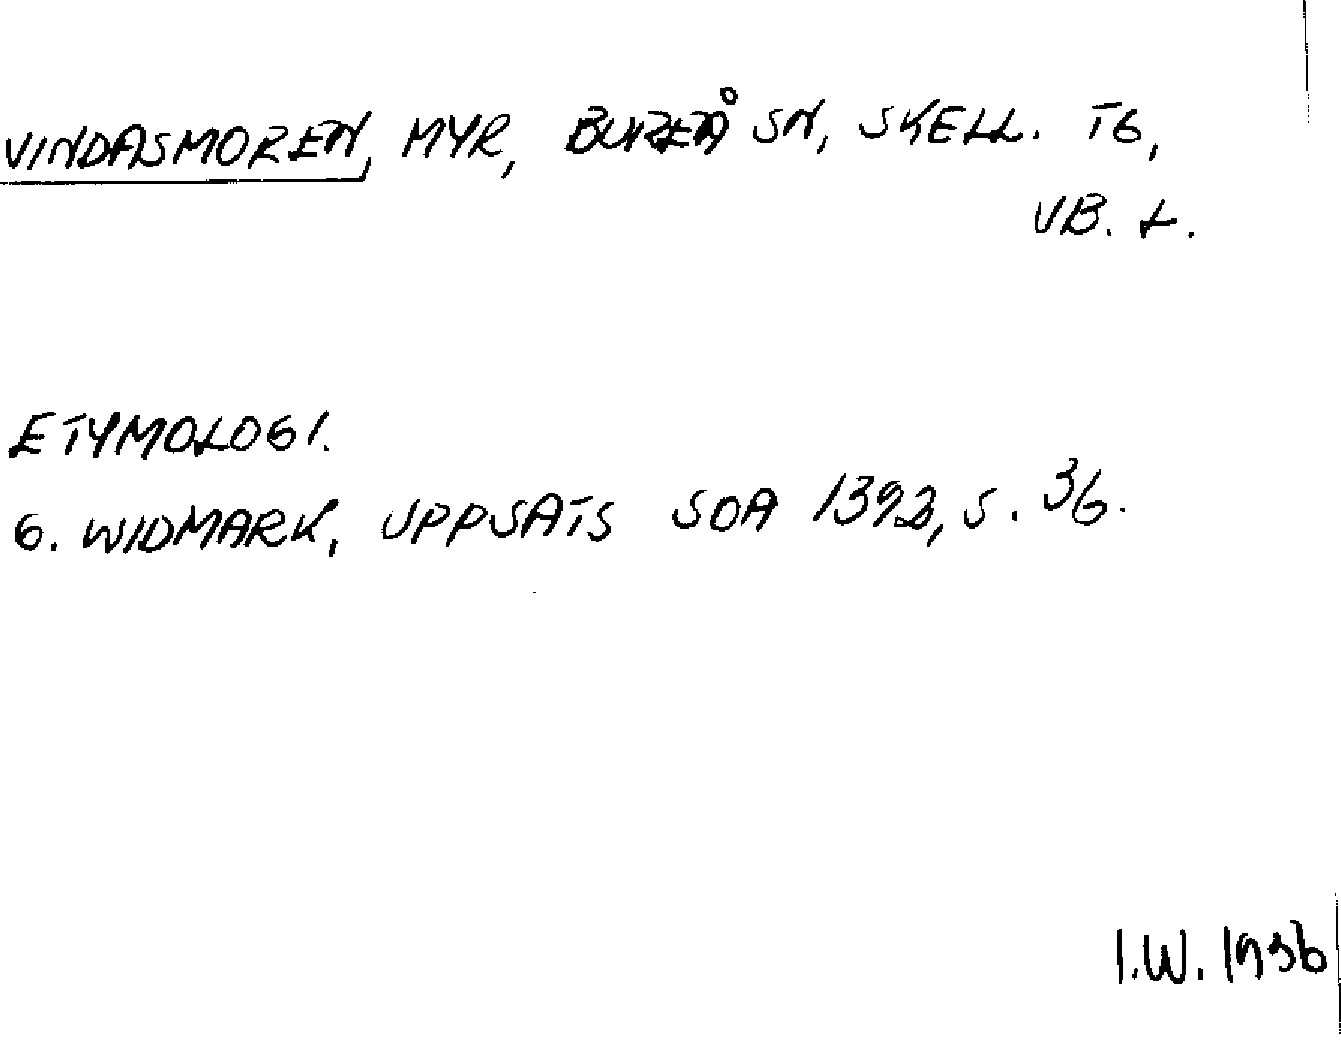 VINDASMOREN, MYR, BUREÅ SN, SKELL. TG,
VB. L.
ETYMOLOGI.
G. WIDMARK, UPPSATS SOA 1392, S. 36.
I.W. 1936